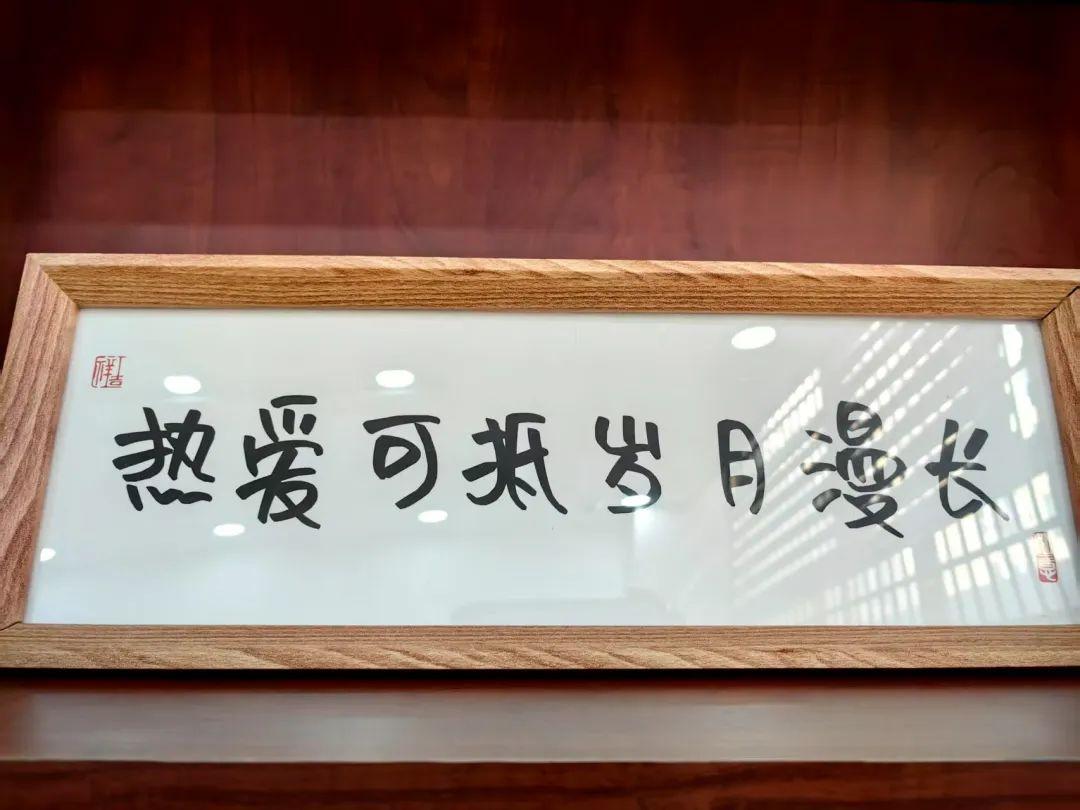 热爱可抵岁月漫长